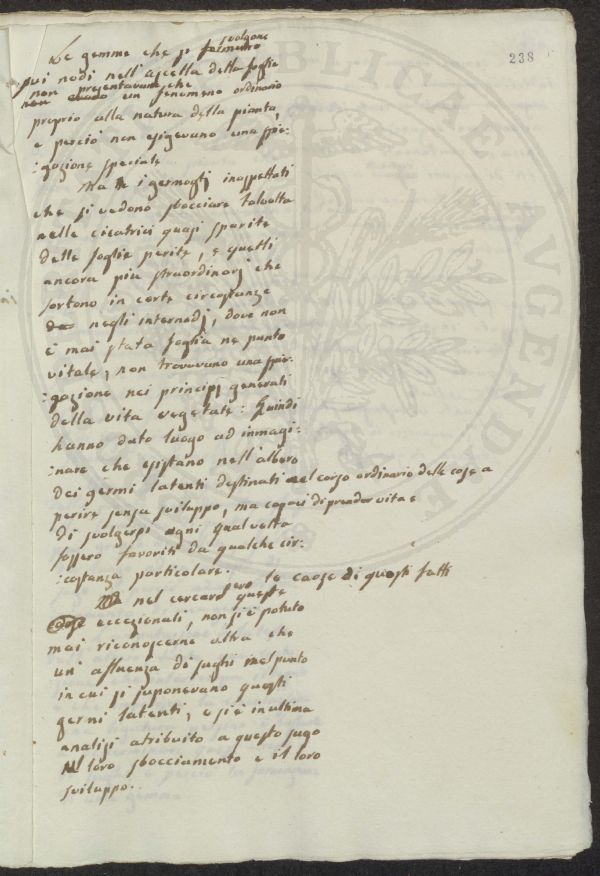 238
Le gemme che si formano svolgono
sui nodi nell'ascella della foglia
non presentavano che
un fenomeno ordinario
proprio alla natura della pianta,
e perciò non esigevano una spie:
:gazione speciale
Ma i germoglj inaspettati
che si vedono sbocciare talvolta
nelle cicatrici quasi sparite
delle foglie perite, e quelli
ancora più straordinarj che
sortono in certe circostanze
negli internodj, dove non
è mai stata foglia ne punto
vitale, non trovavano una spie:
:gazione nei principj generali
della vita vegetale: Quindi
hanno dato luogo ad immagi:
:nare che esistano nell'albero
dei germi latenti destinati nel corso ordinario delle cose a
perire senza sviluppo, ma capaci di prender vita e
di svolgersi ogni qualvolta
fossero favoriti da qualche cir:
:costanza particolare.
Ma nel cercare le cause di questi fatti
queste
eccezionali, non si è potuto
mai riconoscerne altra che
un' affluenza di sughi nel punto
in cui si suponevano questi
germi latenti, e si è in ultima
analisi atribuito a questo sugo
il loro sbocciamento e il loro
sviluppo.
PUBLICAE AVGENDAE